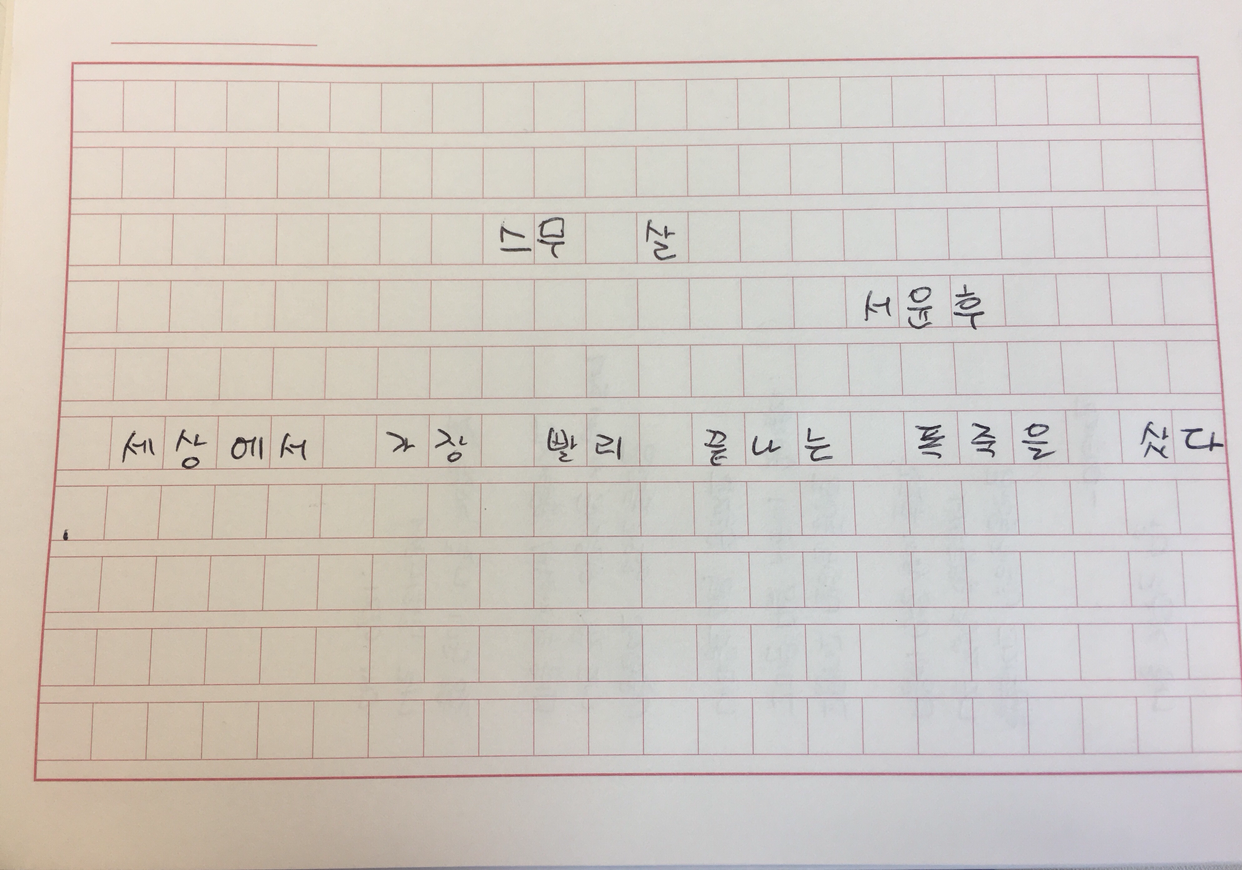 스무 살
서윤후
세상에서 가장 빨리 끝나는 폭죽을 샀다
.